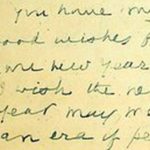 you have my
good wishes f
me new year
I wish the ne
year may m
an era if pe